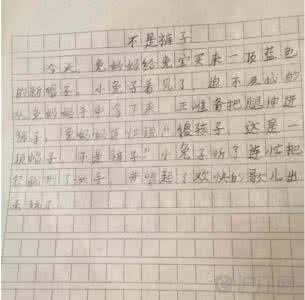 不是裤子
今天，兔妈妈给兔宝买来一顶蓝色
的新帽子，小兔子看见了，迫不及待的
从兔妈妈手中拿下来，正准备把腿伸进
裤子，兔妈妈连忙说“傻孩子，这是一
顶帽子，不是裤子”小兔子听了连忙把
了 手，起了欢快的歌儿出
去玩了